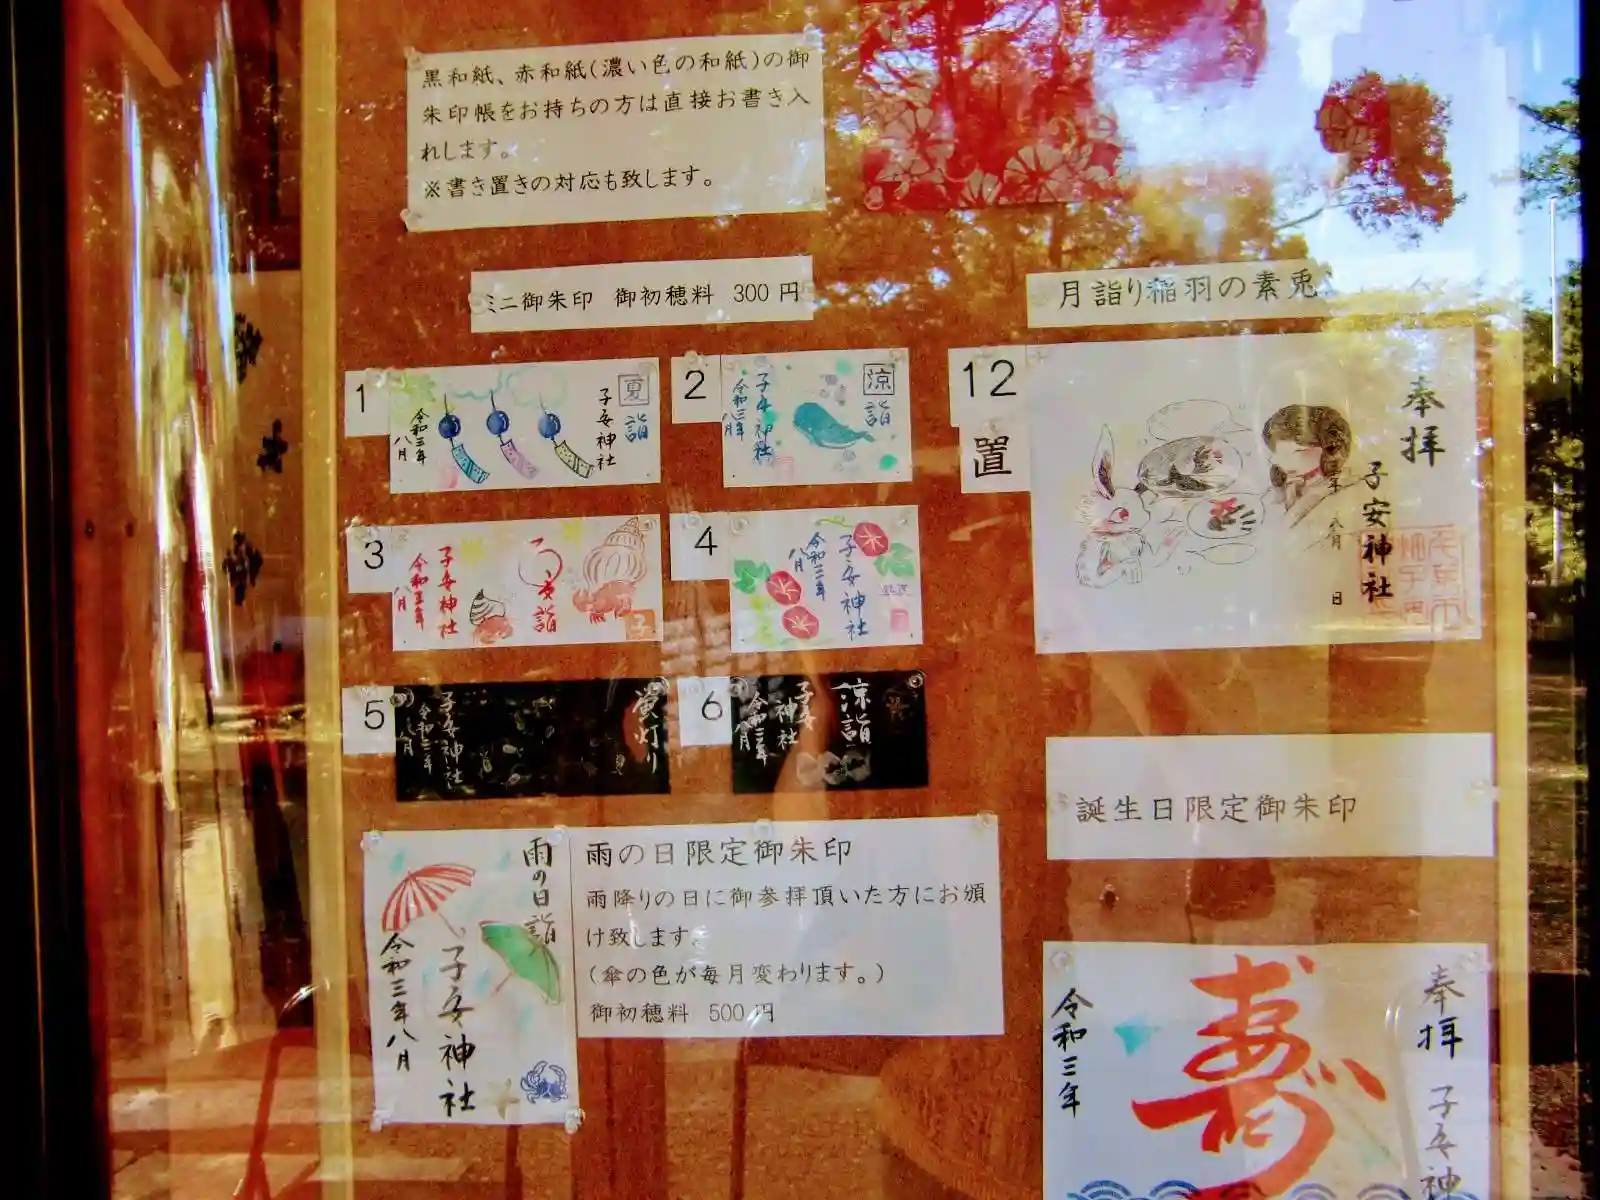 黒和紙、赤和紙(濃い色の和紙)の御
朱印帳をお持ちの方は直接お書き入
れします。
※書き置きの対応も致します。
ミニ御朱印 御初穂料 300円
月詣り稲羽の素兎
1
夏詣
子安神社
令和三年
八月
2
涼詣
子安神社
令和三年
八月
12
置
奉拝
子安神社
八月
日
3
夏詣
子安神社
令和三年
八月
4
子安神社
令和三年
八月
5
蛍灯り
子安神社
令和三年
八月
6
涼詣
子安神社
令和三年
八月
雨の日詣
子安神社
令和三年八月
雨の日限定御朱印
雨降りの日に御参拝頂いた方にお頒
け致します。
(傘の色が毎月変わります。)
御初穂料 500円
誕生日限定御朱印
奉拝 子安神
寿
令和三年